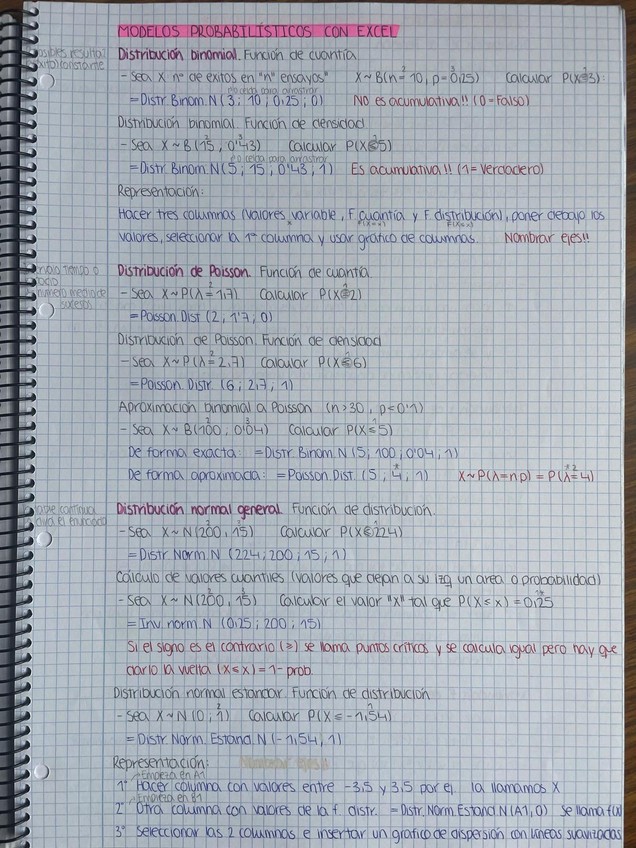 MODELOS PROBABILÍSTICOS CON EXCEL
Distribución binomial. Función de cuantía
- Sea X nº de exitos en "n" ensayos" X~B(n=10, p=0,25) Calcular P(X=3):
nº o celda para arrastrar
= Distr. Binom. N (3; 10; 0,25; 0) NO es acumulativa!! (0=Falso)
Distribución binomial. Función de densidad
- Sea X~B(15, 0'43) Calcular P(X≤5)
nº o celda para arrastrar
= Distr. Binom. N (5; 15; 0'43; 1) Es acumulativa!! (1=Verdadero)
Representación:
Hacer tres columnas (Valores variable, F. cuantía y F. distribución), poner debajo los
valores, seleccionar la 1ª columna y usar gráfico de columnas. Nombrar ejes!!
Distribución de Poisson. Función de cuantía
- Sea X~P(λ=1,7) Calcular P(X=2)
= Poisson. Dist (2, 1'7, 0)
Distribución de Poisson. Función de densidad
- Sea X~P(λ=2,7) Calcular P(X≤6)
= Poisson. Distr. (6; 2,7; 1)
Aproximación binomial a Poisson (n>30, p<0'1)
- Sea X~B(100; 0'04) Calcular P(X≤5)
De forma exacta: = Distr. Binom. N (5; 100; 0'04; 1)
De forma aproximada: = Poisson. Dist. (5, 4, 1) X~P(λ=np) = P(λ=4)
Distribución normal general. Función de distribución.
- Sea X~N(200, 15) Calcular P(X≤224)
= Distr. Norm. N (224; 200; 15; 1)
Cálculo de valores cuantiles (valores que dejan a su izq un area o probabilidad)
- Sea X~N(200, 15) Calcular el valor "x" tal que P(X≤x)=0,25
= Inv. norm. N (0,25; 200; 15)
Si el signo es el contrario (≥) se llama puntos críticos y se calcula igual pero hay que
darlo la vuelta (X≤x) = 1 - prob.
Distribución normal estandar. Función de distribución
- Sea X~N(0; 1) Calcular P(X≤-1,54)
= Distr. Norm. Estand. N (-1,54; 1)
Representación:
Empieza en A1
1º Hacer columna con valores entre -3,5 y 3,5 por ej. la llamamos X
Empieza en B1
2º Otra columna con valores de la f. distr. = Distr. Norm. Estand. N (A1, 0) Se llama f(x)
3º Seleccionar las 2 columnas e insertar un gráfico de dispersión con líneas suavizadas